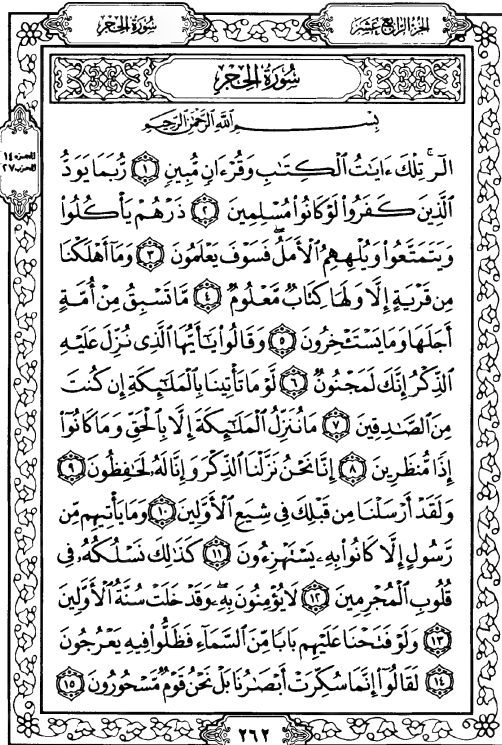 سُورَةُ الحِجْر
الجُزءُ الرَّابِعَ عَشَرَ
سُورَةُ الحِجْرِ
الجزء ١٤
الحزب ٢٧
بِسْمِ اللَّهِ الرَّحْمَٰنِ الرَّحِيمِ
الٓرۚ تِلْكَ ءَايَٰتُ ٱلْكِتَٰبِ وَقُرْءَانٍ مُّبِينٍ ۝١ رُّبَمَا يَوَدُّ
ٱلَّذِينَ كَفَرُوا۟ لَوْ كَانُوا۟ مُسْلِمِينَ ۝٢ ذَرْهُمْ يَأْكُلُوا۟
وَيَتَمَتَّعُوا۟ وَيُلْهِهِمُ ٱلْأَمَلُۖ فَسَوْفَ يَعْلَمُونَ ۝٣ وَمَآ أَهْلَكْنَا
مِن قَرْيَةٍ إِلَّا وَلَهَا كِتَابٌ مَّعْلُومٌ ۝٤ مَّا تَسْبِقُ مِنْ أُمَّةٍ
أَجَلَهَا وَمَا يَسْتَـْٔخِرُونَ ۝٥ وَقَالُوا۟ يَٰٓأَيُّهَا ٱلَّذِى نُزِّلَ عَلَيْهِ
ٱلذِّكْرُ إِنَّكَ لَمَجْنُونٌ ۝٦ لَّوْ مَا تَأْتِينَا بِٱلْمَلَٰٓئِكَةِ إِن كُنتَ
مِنَ ٱلصَّٰدِقِينَ ۝٧ مَا نُنَزِّلُ ٱلْمَلَٰٓئِكَةَ إِلَّا بِٱلْحَقِّ وَمَا كَانُوٓا۟
إِذًا مُّنظَرِينَ ۝٨ إِنَّا نَحْنُ نَزَّلْنَا ٱلذِّكْرَ وَإِنَّا لَهُۥ لَحَٰفِظُونَ ۝٩
وَلَقَدْ أَرْسَلْنَا مِن قَبْلِكَ فِى شِيَعِ ٱلْأَوَّلِينَ ۝١٠ وَمَا يَأْتِيهِم مِّن
رَّسُولٍ إِلَّا كَانُوا۟ بِهِۦ يَسْتَهْزِءُونَ ۝١١ كَذَٰلِكَ نَسْلُكُهُۥ فِى
قُلُوبِ ٱلْمُجْرِمِينَ ۝١٢ لَا يُؤْمِنُونَ بِهِۦۖ وَقَدْ خَلَتْ سُنَّةُ ٱلْأَوَّلِينَ
۝١٣ وَلَوْ فَتَحْنَا عَلَيْهِم بَابًا مِّنَ ٱلسَّمَآءِ فَظَلُّوا۟ فِيهِ يَعْرُجُونَ
۝١٤ لَقَالُوٓا۟ إِنَّمَا سُكِّرَتْ أَبْصَٰرُنَا بَلْ نَحْنُ قَوْمٌ مَّسْحُورُونَ ۝١٥
٢٦٢